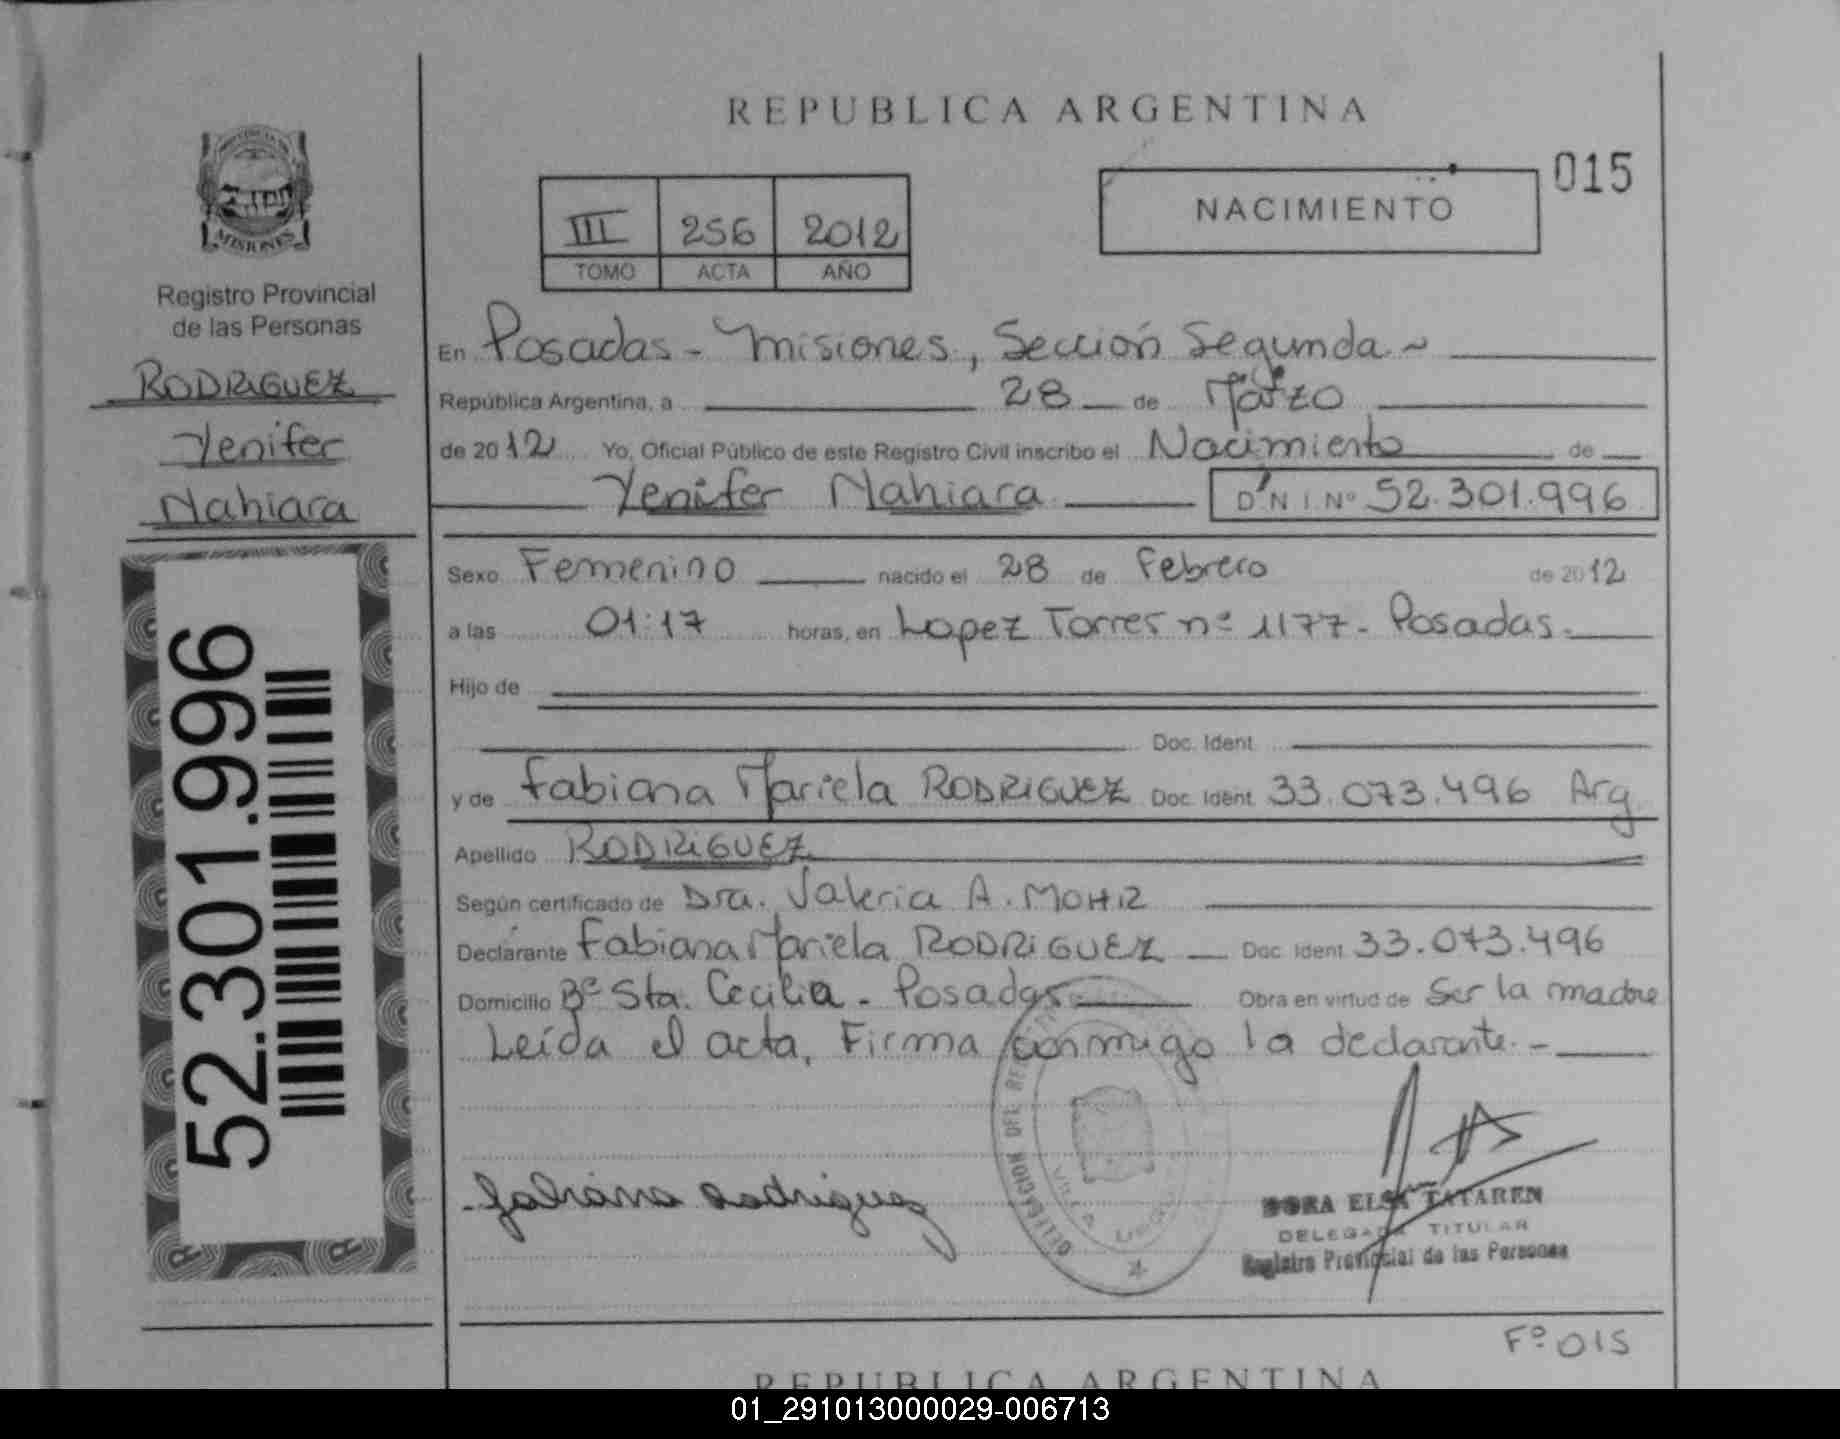 REPUBLICA ARGENTINA
015
NACIMIENTO
III 256 2012
TOMO ACTA AÑO
MISIONES
Registro Provincial
de las Personas
RODRIGUEZ
Yenifer
Nahiara
52.301.996
En Posadas - Misiones, Sección Segunda
República Argentina, a 28 de Marzo
de 2012 Yo, Oficial Público de este Registro Civil inscribo el Nacimiento de
Yenifer Nahiara D.N.I. Nº 52.301.996
Sexo Femenino nacido el 28 de Febrero de 2012
a las 01:17 horas, en Lopez Torres nº 1177 - Posadas.
Hijo de
Doc. Ident.
y de Fabiana Mariela RODRIGUEZ Doc. Ident. 33.073.496 Arg.
Apellido RODRIGUEZ
Según certificado de Dra. Valeria A.
Declarante Fabiana Mariela RODRIGUEZ Doc. Ident. 33.073.496
Domicilio Bº Sta. Cecilia - Posadas Obra en virtud de Ser la madre
Leída el acta, Firma conmigo la declarante. -
Fabiana Rodriguez
DELEGACION DEL
VILLA
DORA ELSA TATAREN
DELEGADA TITULAR
Registro Provincial de las Personas
Fº 015
REPUBLICA ARGENTINA
01_291013000029-006713